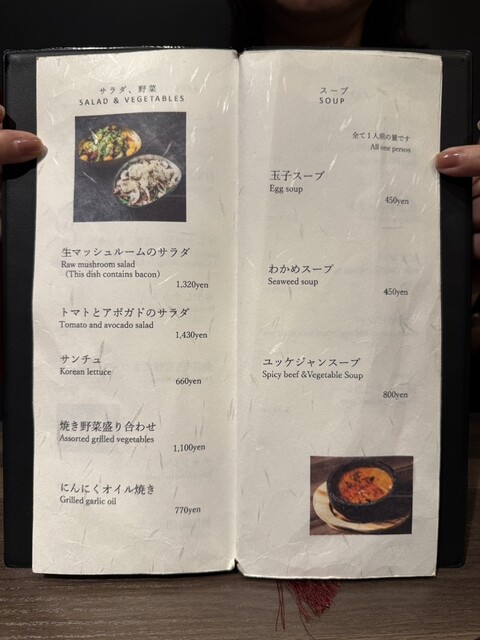 サラダ、野菜
SALAD & VEGETABLES
生マッシュルームのサラダ
Raw mushroom salad
(This dish contains bacon)
1,320yen
トマトとアボガドのサラダ
Tomato and avocado salad
1,430yen
サンチュ
Korean lettuce
660yen
焼き野菜盛り合わせ
Assorted grilled vegetables
1,100yen
にんにくオイル焼き
Grilled garlic oil
770yen
スープ
SOUP
全て1人前の量です
All one person
玉子スープ
Egg soup
450yen
わかめスープ
Seaweed soup
450yen
ユッケジャンスープ
Spicy beef &Vegetable Soup
800yen